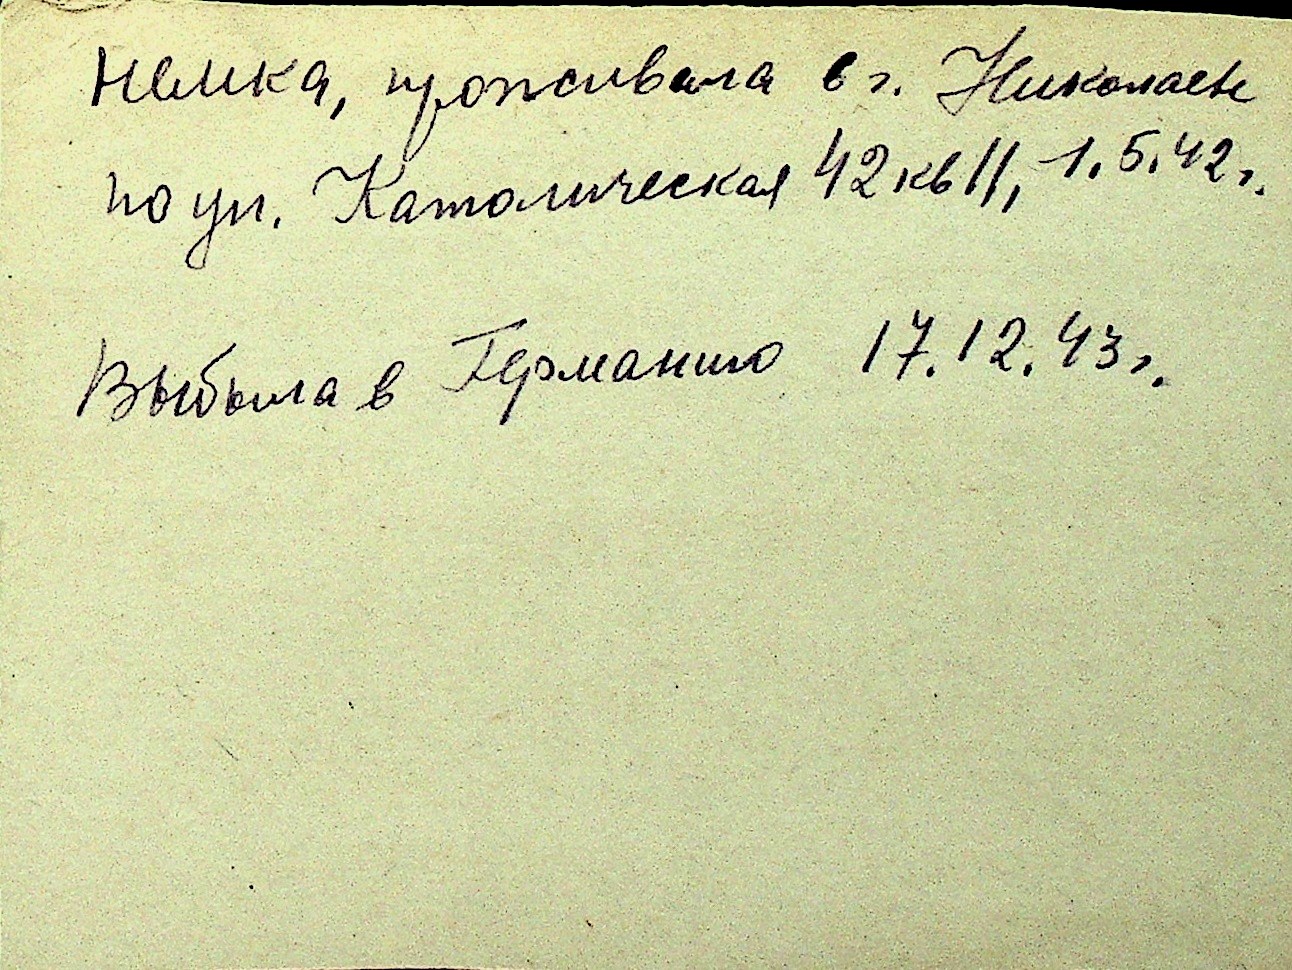 немка, проживала в г. Николаеве
по ул. Католическая 42 кв 11, 1.5.42 г.
Выбыла в Германию 17.12.43 г.